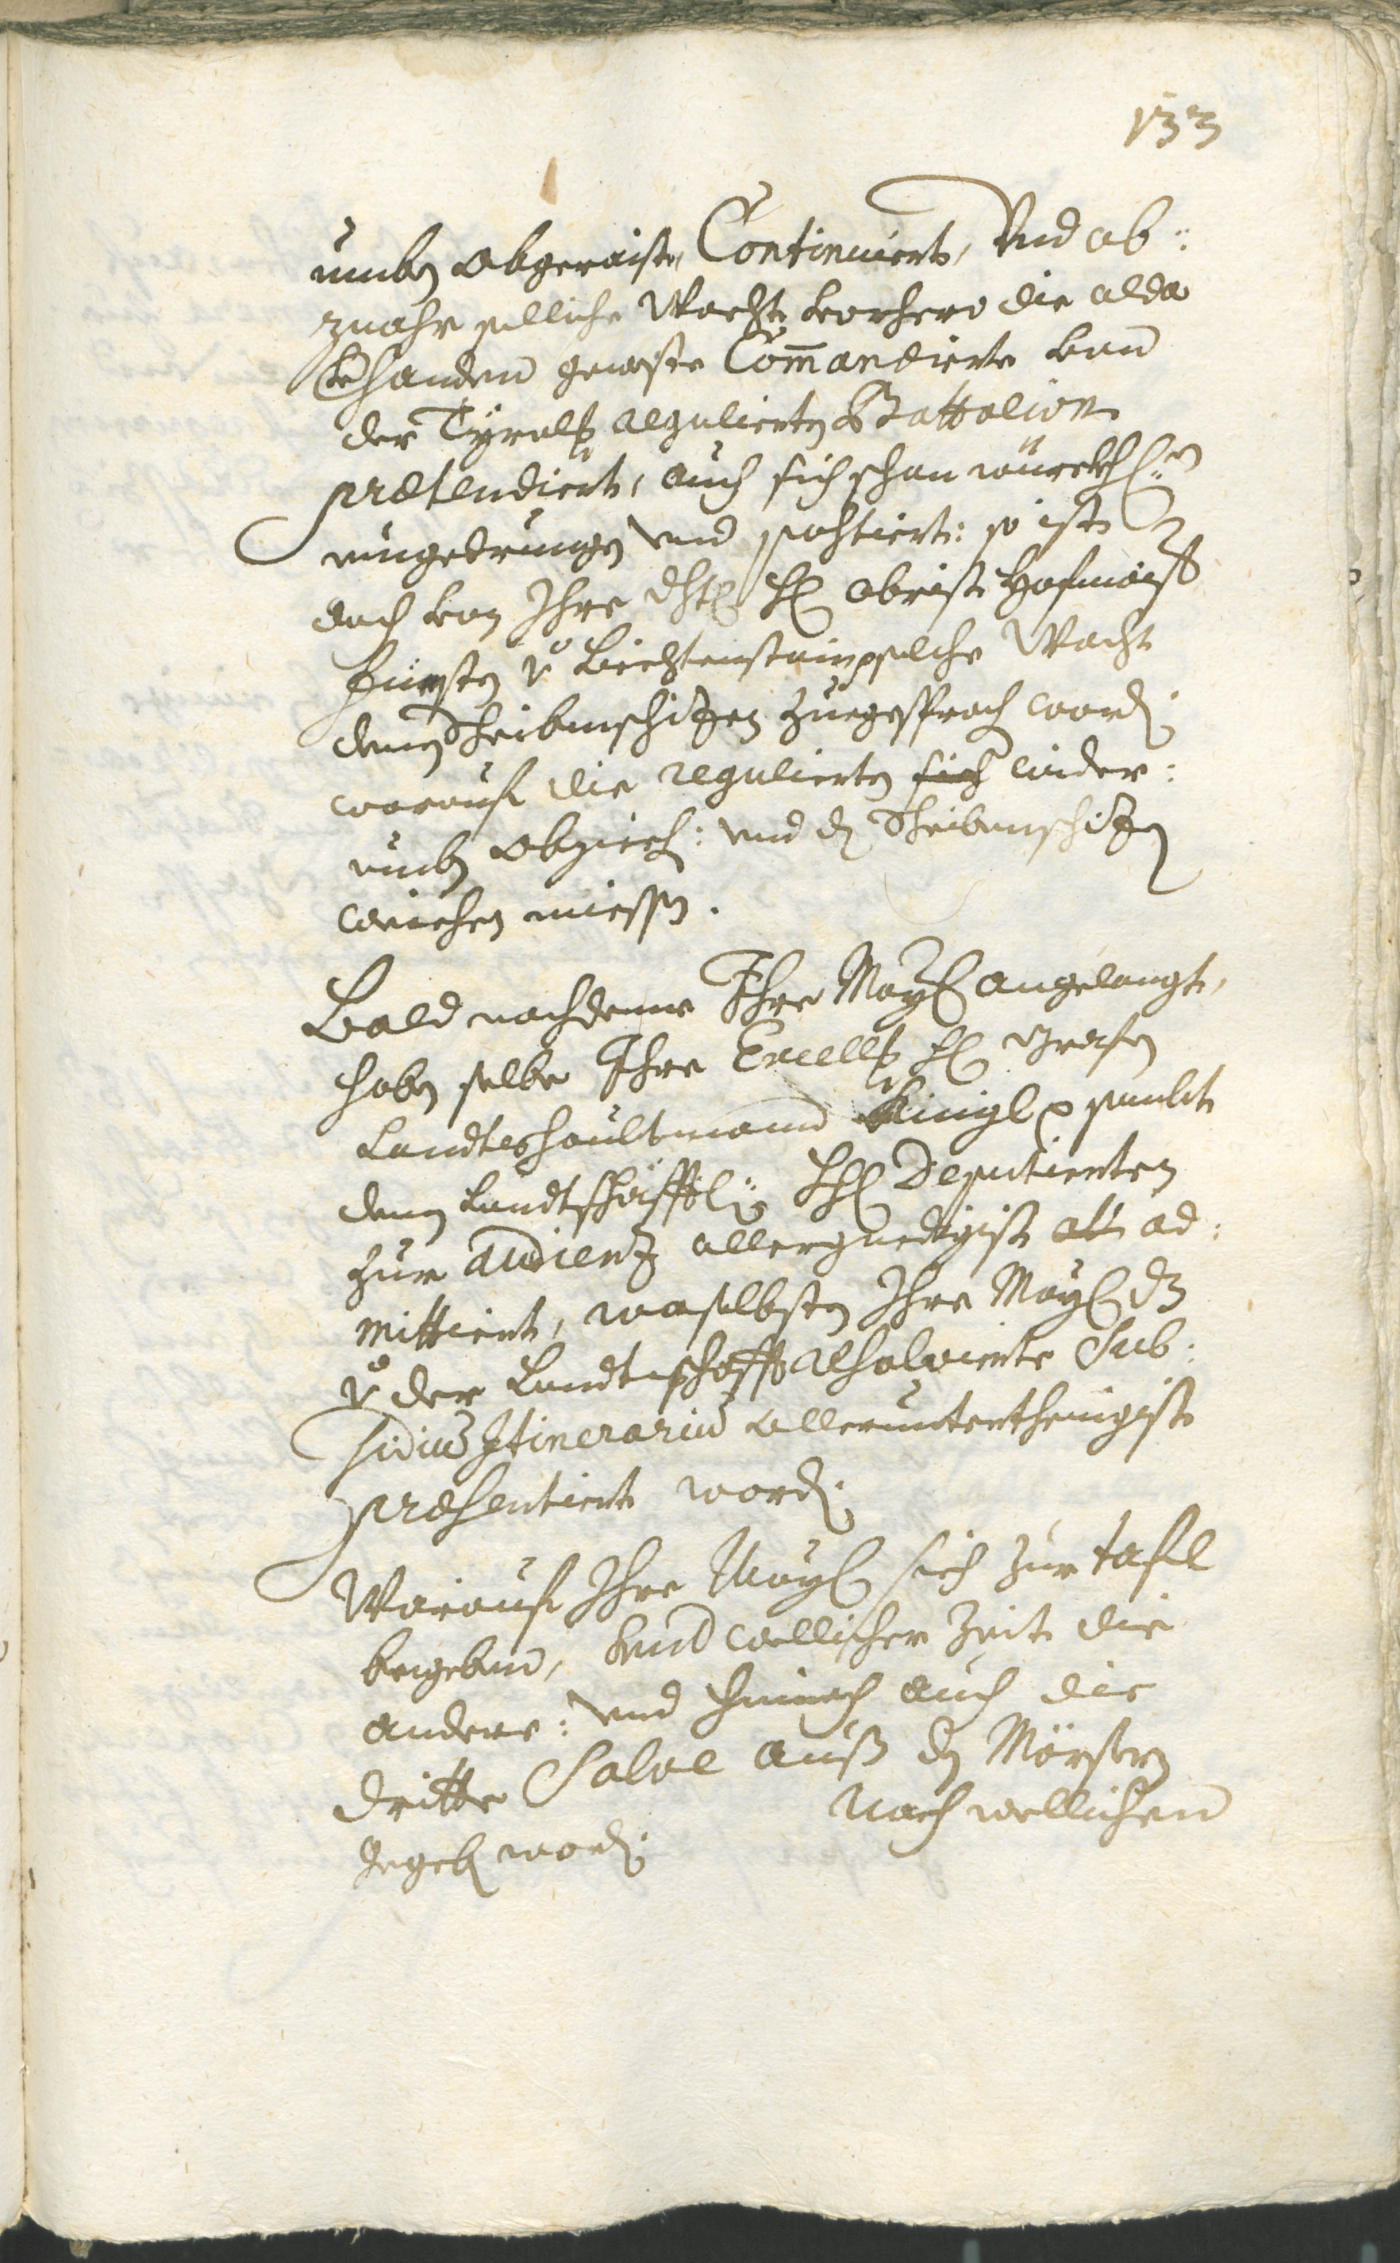 133
umben abgeraist, Continuiert, Vnd ob:
zwahr selliche Wacht vorhero die alda
verhanden geweste Commandierte von
der Tyrolls regulierten Battalion
prætendiert, auch sich schon würckhl:
eingetrungen vnd postiert: so ist
doch von Ihre dhl: H: obrist Hofmaist
Fürsten v Liechtenstain solche Wacht
denen Scheibenschizen zuegesproch word:
worauf die regulierten sich wider:
umb abziech: und dn Scheibenschizen
weichen miessen.
Bald nachdeme Ihre May: angelangt,
haben selbe Ihre Excell: H: Grafen
Landtshaubtmann Künigl sambt
denen Landtschäfftl: HH: Deputierten
zur Audienz allergnedigist ad:
mittiert, woselbsten Ihre May: dz
v der Landtschafft resolvierte Sub:
sidium Itinerarium allerunterthenigist
præsentiert word:
Worauf Ihre May: sich zur tafel
begeben, vnd wellicher Zeit die
andere: vnd hernach auch die
dritte Salve auß dn Mörsern
Nach wellichem
gegeb word: